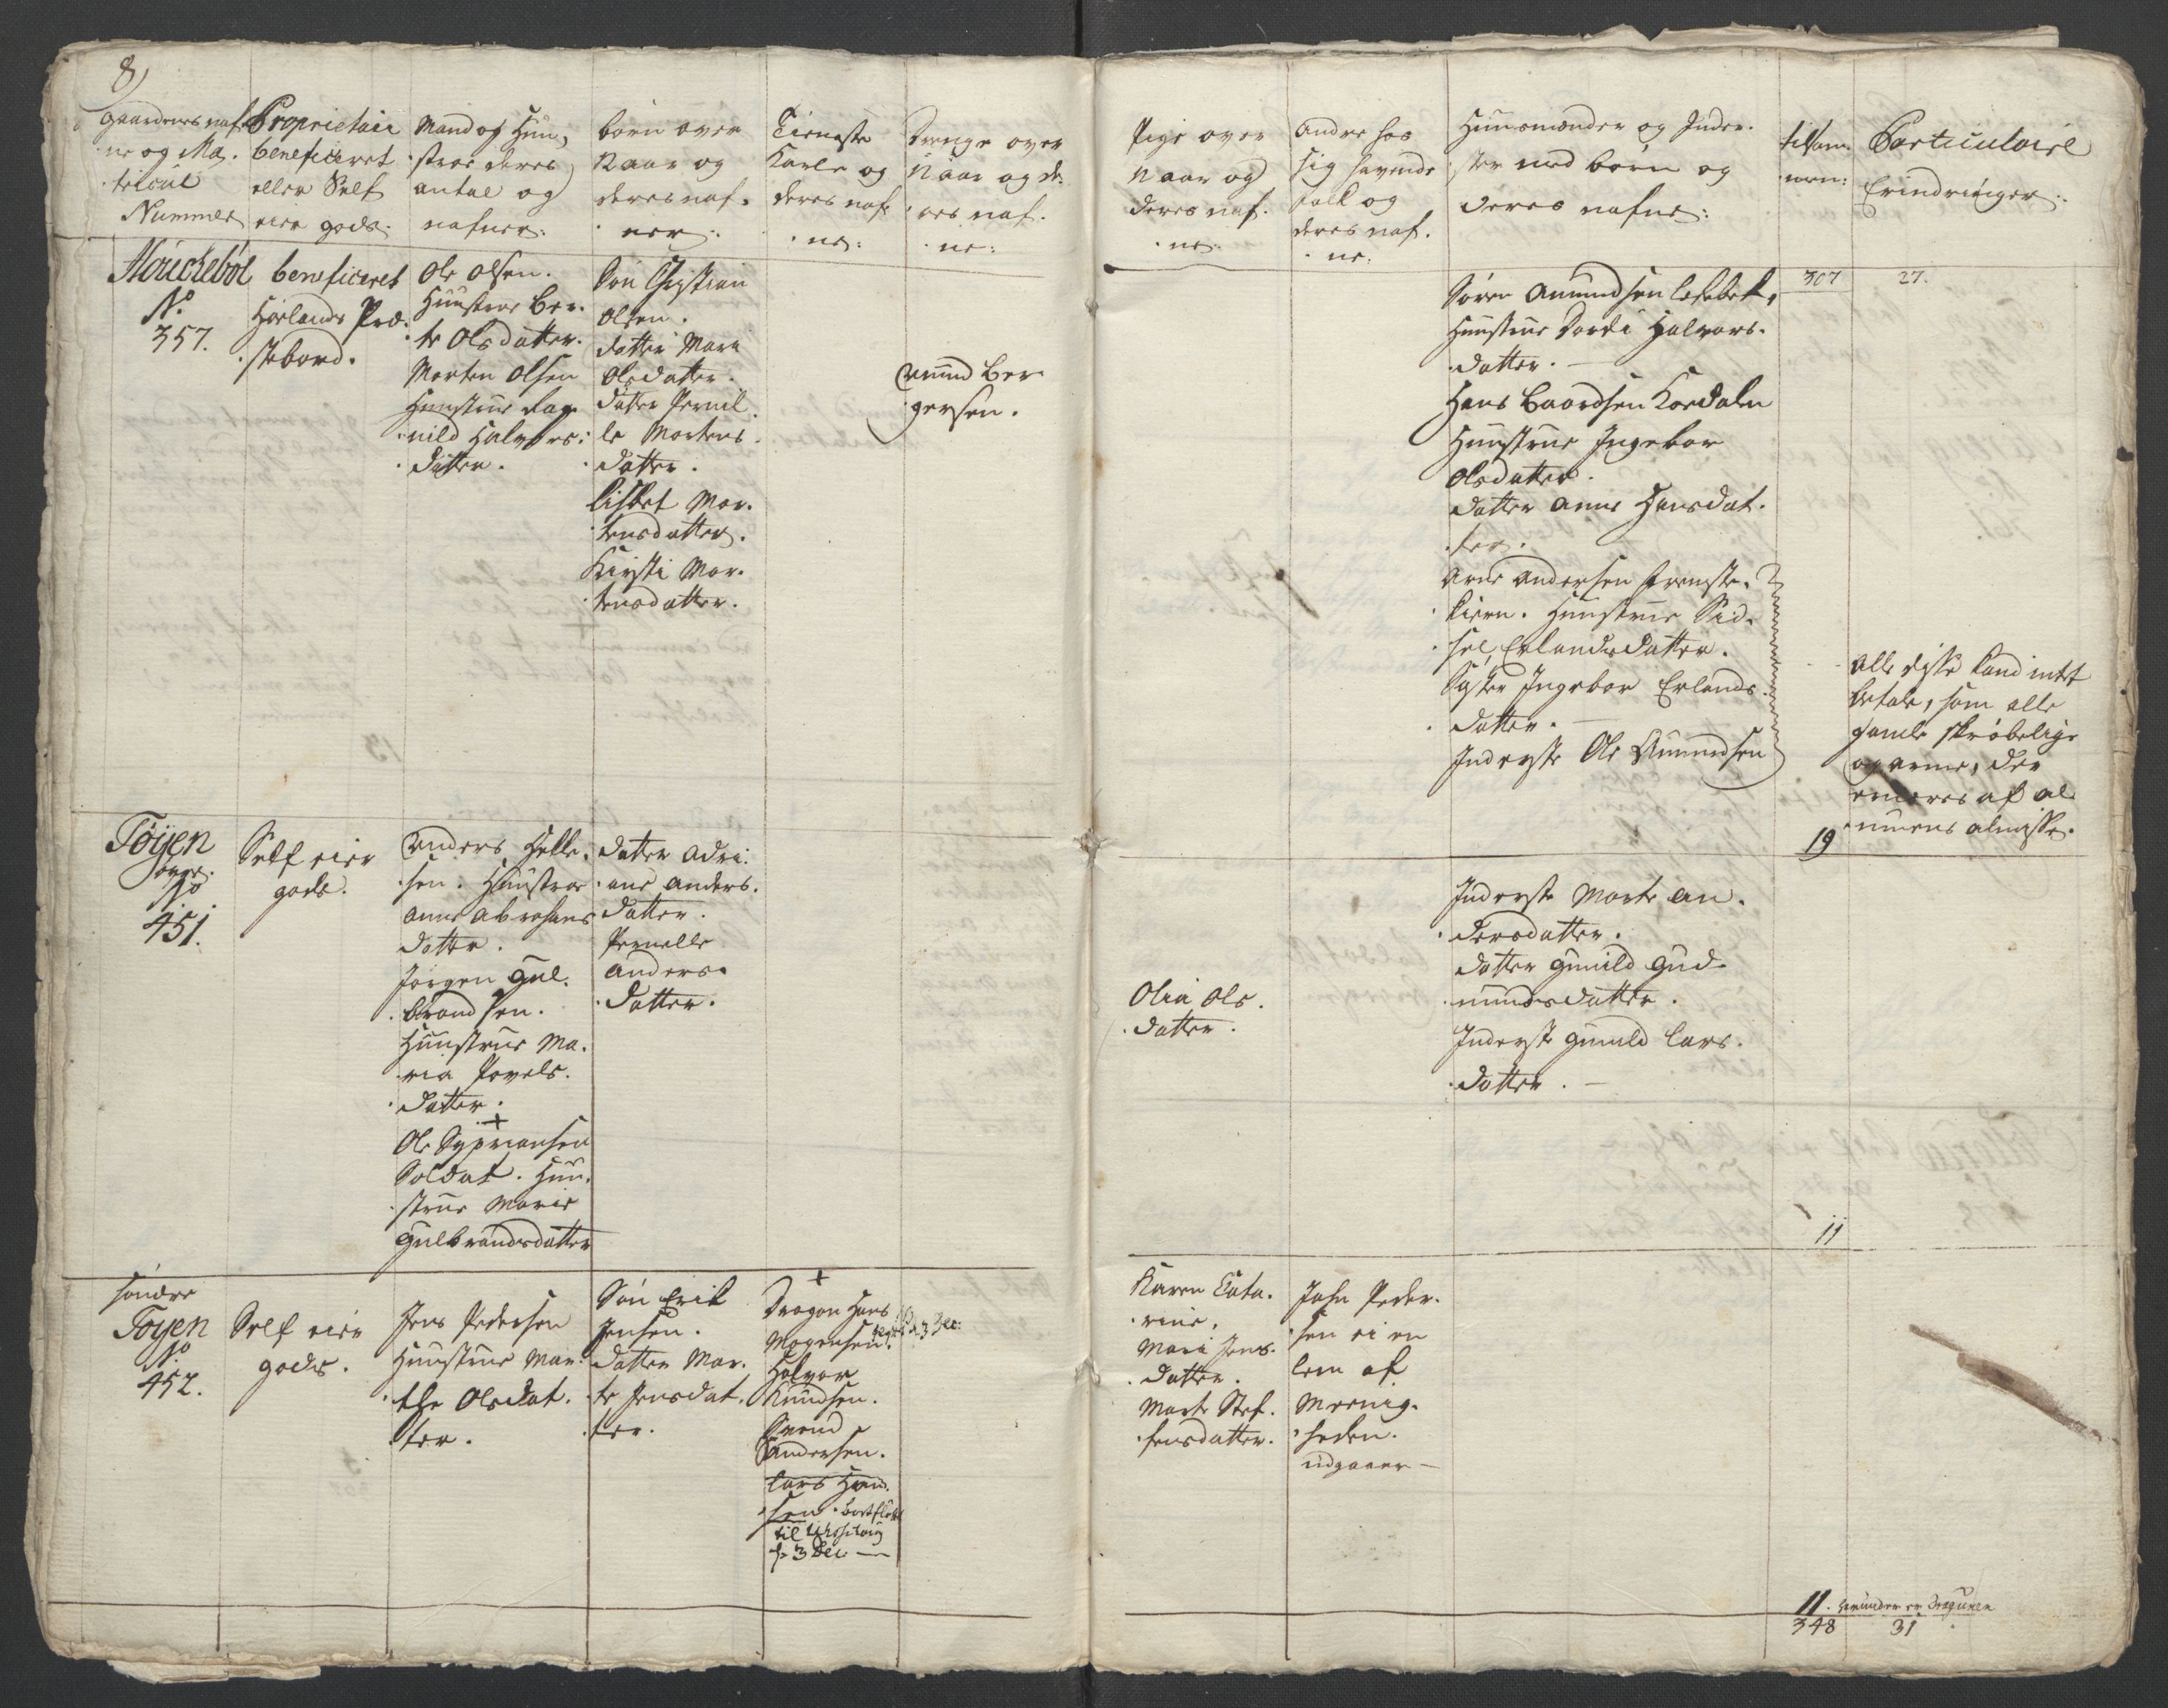 8)
Gaardenes naf-
ne og Ma-
tricul
Nummer
Proprietair
beneficeret
eller Self
eier gods.
Mand og Hu-
stroe deres
antal og
nafner.
börn over
12 aar og
deres naf-
ner.
Tieneste
Karle og
deres naf-
ne:
Drenge over
12 aar og de-
res naf-
ne:
Pige over
12 aar og
deres naf-
ne.
Andre hos
sig havende
folk og
deres naf-
ne.
Huusmænder og Inder-
ster med börn og
deres nafne:
tilsam-
men:
Particulaire
Erindringer.
No
357.
beneficeret
Hörlands Præ-
stebord.
Ole Olsen.
Huustroe Ber-
te Olsdatter.
Morten Olsen
Huustrue Rag-
nild Halvors-
datter.
Sön Christian
Olsen.
datter Mari
Olsdatter.
datter Pernil-
le Mortens-
datter.
Lisbet Mor-
tensdatter.
Kirsti Mor-
tensdatter.
Amund Ber-
gersen.
Sören Amundsen
Huustrue Dordi Halvors-
datter.
Hans Baardsen Kordalen
Huustrue Ingebor
Olsdatter.
datter Anne Hansdat-
ter.
Arne Andersen
Huustrue Sid-
sel Erlandsdatter.
Söster Ingebor Erlands-
datter.
Inderste Ole Amundsen
307
27.
alle disse kand intet
betale, som alle
gamle skröbelige
og arme, der
ernæres af al-
muens almisse.
19
Töyen
No
451.
Self eier
gods.
Anders Helle-
sen. Huustroe
Anne Abrahams
datter.
Jörgen Gul-
brandsen.
Huustrue Ma-
ria Povels-
datter.
+
Ole Sypriansen
Soldat. Huu-
strue Marie
Gulbrandsdatter
datter Adri-
ane Anders-
datter.
Pernelle
Anders-
datter.
Olia Ols-
datter.
Inderste Marte An-
dersdatter.
datter Gunild Gud-
mundsdatter.
Inderste Gunild Lars-
datter.
11
söndre
Töyen
No
452.
Self eier
gods.
Jens Pedersen
Huustrue Mar-
the Olsdat-
ter.
Sön Erik
Jensen.
datter Mar-
te Jensdat-
ter.
+
Dragon Hans
Mogensen.
Halvor
Knudsen.
Svend
Andersen.
Lars Han-
sen. bortflöttet
til
d. 3 Dec.
Karen Cata-
rine.
Mari Jens-
datter.
Marte Stef-
fensdatter.
John Peder-
sen ei en
lem af
Meenig-
heden.
udgaaer
11. herunder er Dragunen
348
31